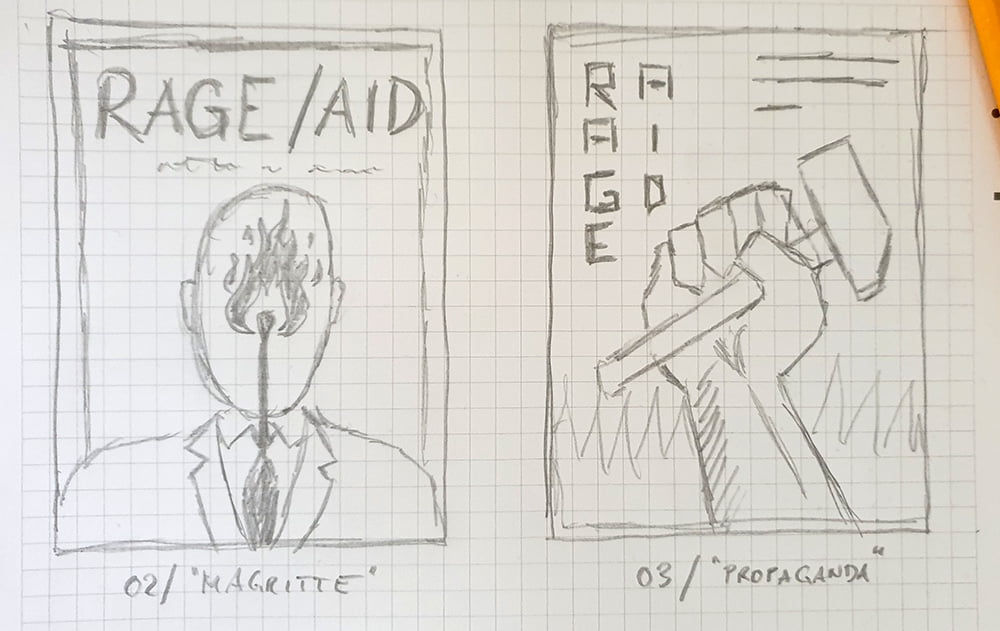 RAGE/AID
02/"MAGRITTE"
RAGE
AID
03/"PROPAGANDA"